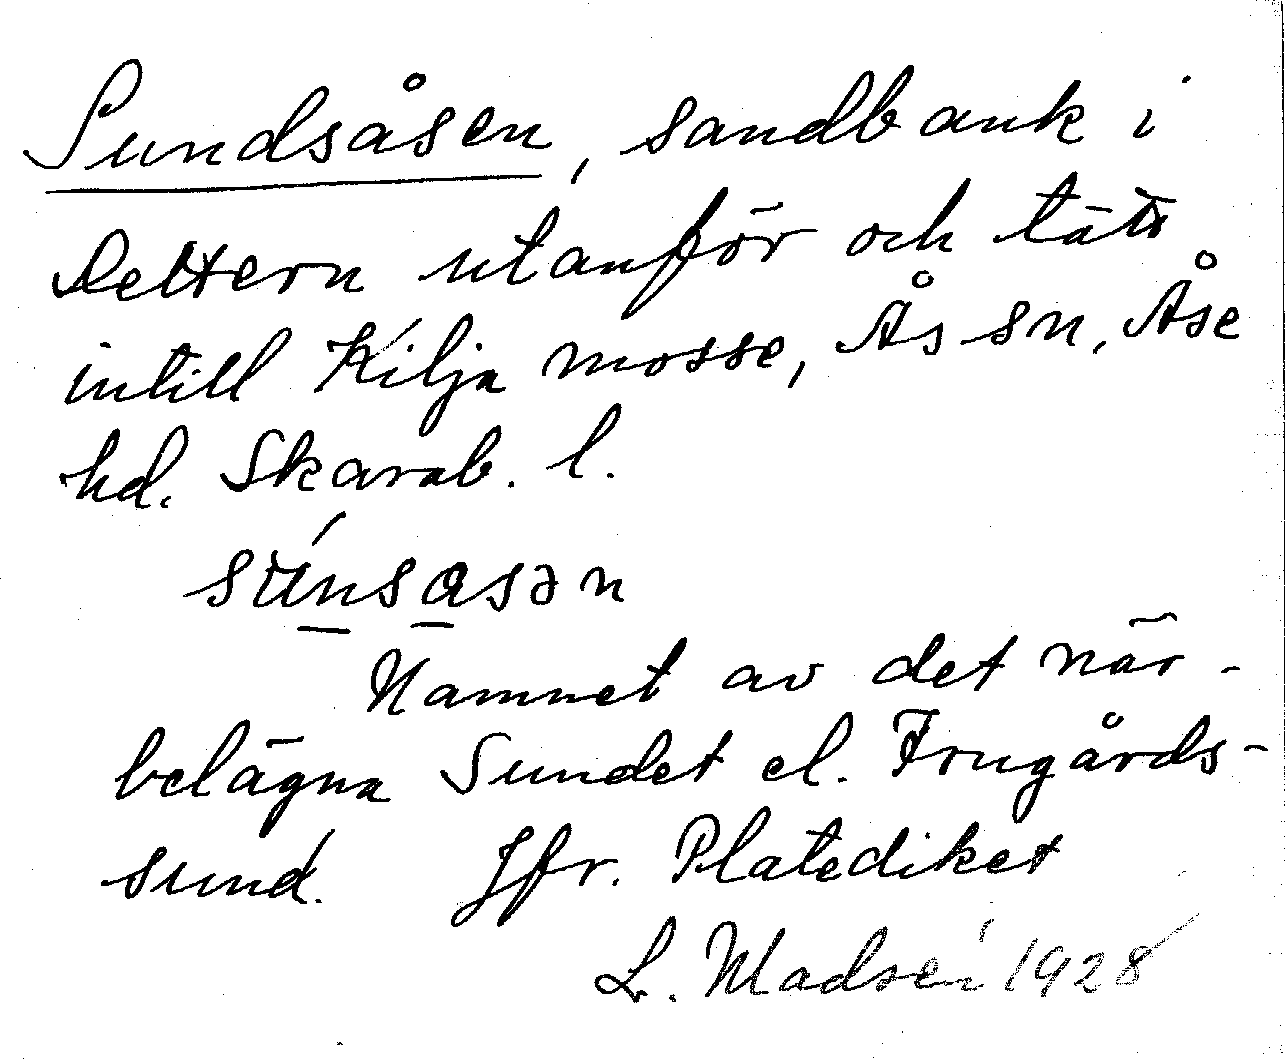 Sundsåsen, sandbank i
Dettern utanför och tätt
intill Kilja mosse, Ås sn, Åse
hd. Skarab. l.
súnsasən
Namnet av det när-
belägna Sundet el. Frugårds-
sund. Jfr. Platediket
L. Madsén 1928